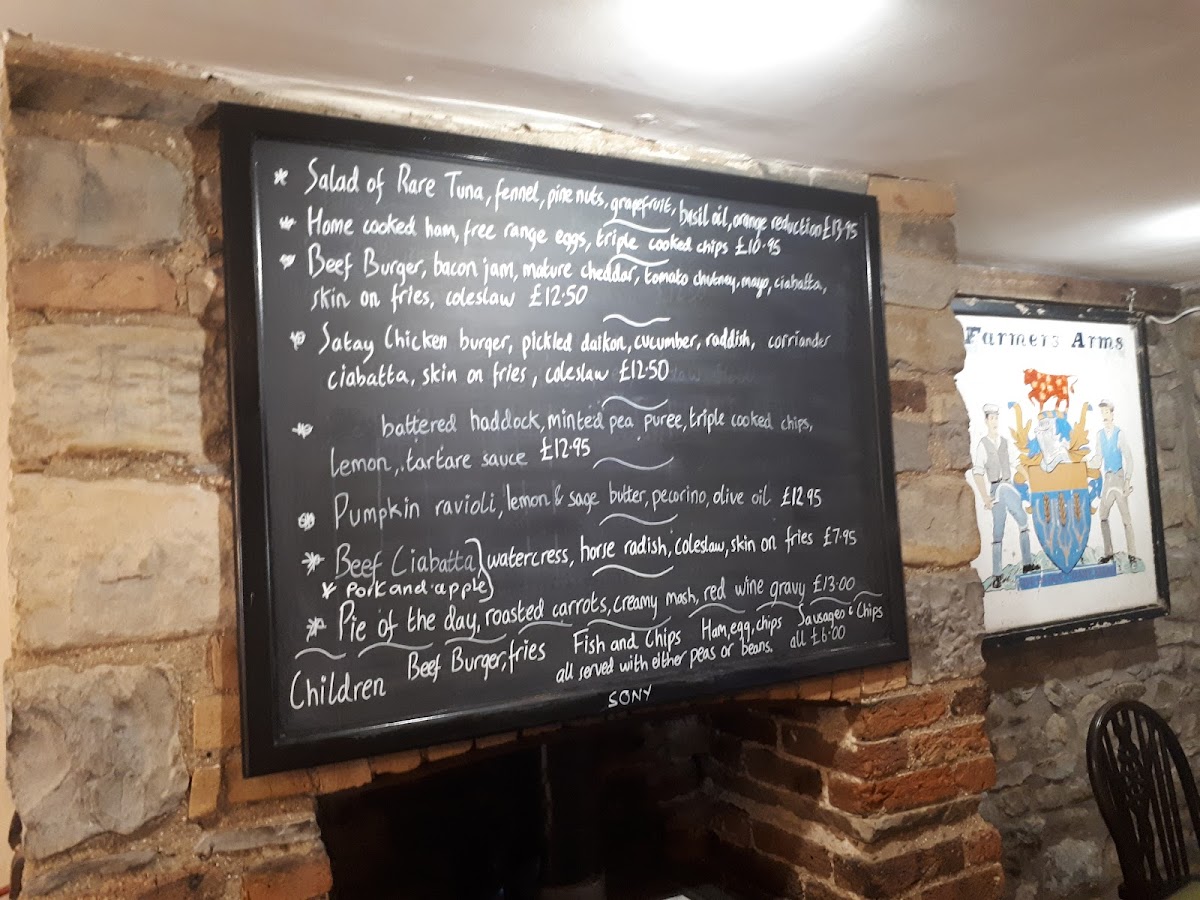 * Salad of Rare Tuna, fennel, pine nuts, grapefruit, basil oil, orange reduction £13.95
* Home cooked ham, free range eggs, triple cooked chips £10.95
* Beef Burger, bacon jam, mature cheddar, tomato chutney, mayo, ciabatta,
skin on fries, coleslaw £12.50
* Satay Chicken burger, pickled daikon, cucumber, raddish, corriander
ciabatta, skin on fries, coleslaw £12.50
* battered haddock, minted pea puree, triple cooked chips,
lemon, tartare sauce £12.95
* Pumpkin ravioli, lemon & sage butter, pecorino, olive oil £12.95
* Beef Ciabatta } watercress, horse radish, coleslaw, skin on fries £7.95
* Pork and apple
* Pie of the day, roasted carrots, creamy mash, red wine gravy £13.00
Children Beef Burger, fries Fish and Chips Ham, egg, chips Sausages & Chips
all served with either peas or beans. all £6.00
SONY
Farmers Arms